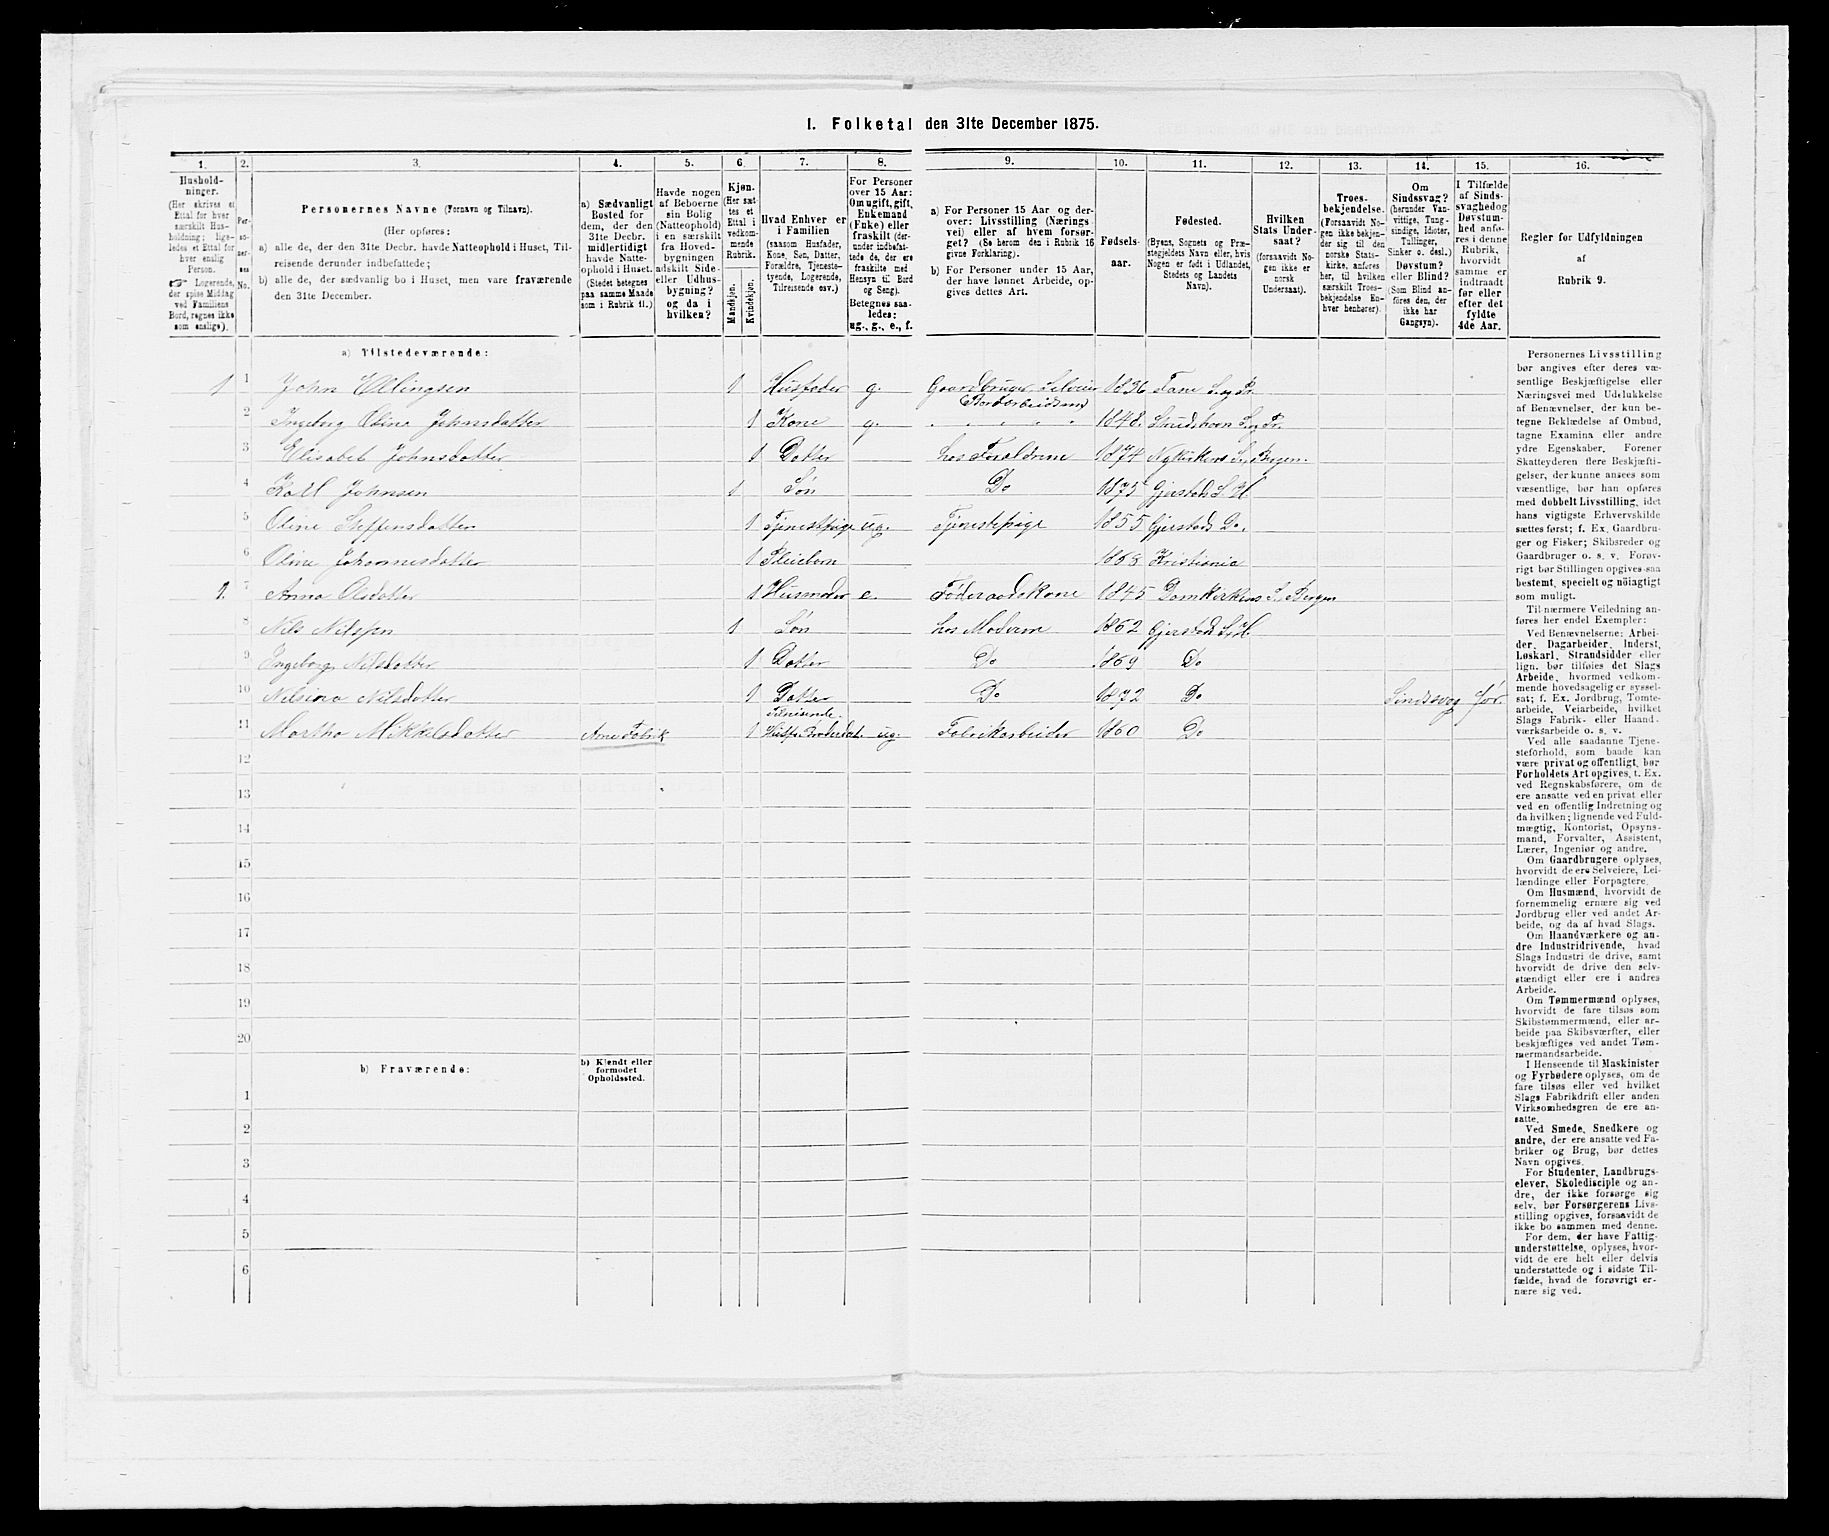 1. Folketal den 31te December 1875.
1. 2. 3. 4. 5. 6. 7. 8. 9. 10. 11. 12. 13. 14. 15. 16.
Hushold-
ninger.
(Her skrives et
Ettal for hver
særskilt Hus-
holdning; lige-
ledes et Ettal for
hver enslig
Person.
Logerende,
der spise Middag
ved Familiens
Bord, regnes ikke
som enslige).
Per-
so-
ner-
nes
No.
Personernes Navne (Fornavn og Tilnavn).
(Her opføres:
a) alle de, der den 31te Decbr. havde Natteophold i Huset, Til-
reisende derunder indbefattede;
b) alle de, der sædvanlig bo i Huset, men vare fraværende
den 31te December.
a) Sædvanligt
Bosted for
dem, der den
31te Decbr.
midlertidigt
havde Natte-
ophold i Huset.
(Stedet betegnes
paa samme Maade
som i Rubrik 11.)
Havde nogen
af Beboerne
sin Bolig
(Natteophold)
i en særskilt
fra Hoved-
bygningen
adskilt Side-
eller Udhus-
bygning?
og da i
hvilken?
Kjøn.
(Her sæt-
tes et
Ettal i
vedkom-
mende
Rubrik.
Mandkjøn.
Kvindekjøn.
Hvad Enhver er
i Familien
(saasom Husfader,
Kone, Søn, Datter,
Forældre, Tjeneste-
tyende, Logerende,
Tilreisende osv.)
For Personer
over 15 Aar:
Om ugift, gift,
Enkemand
(Enke) eller
fraskilt (der-
under indbefat-
tede de, der ere
fraskilte med
Hensyn til Bord
og Seng).
Betegnes saa-
ledes:
ug., g., e., f.
a) For Personer 15 Aar og der-
over: Livsstilling (Nærings-
vei) eller af hvem forsør-
get? (Se herom den i Rubrik 16
givne Forklaring).
b) For Personer under 15 Aar,
der have lønnet Arbeide, op-
gives dettes Art.
Fødsels-
aar.
Fødested.
(Byens, Sognets og Præ-
stegjeldets Navn eller, hvis
Nogen er født i Udlandet,
Stedets og Landets
Navn).
Hvilken
Stats Under-
saat?
(forsaavidt No-
gen ikke er
norsk
Undersaat).
Troes-
bekjendelse.
(Forsaavidt No-
gen ikke bekjen-
der sig til den
norske Stats-
kirke, anføres
her, til hvilken
særskilt Troes-
bekjendelse En-
hver henhører).
Om
Sindssvag?
(herunder Van-
vittige, Tung-
sindige, Idioter,
Tullinger,
Sinker o. desl.)
Døvstum?
eller Blind?
(Som Blind an-
føres den, der
ikke har
Gangsyn).
I Tilfælde
af Sinds-
svaghed og
Døvstum-
hed anfø-
res i denne
Rubrik,
hvorvidt
samme er
indtraadt
før eller
efter det
fyldte
4de Aar.
Regler for Udfyldningen
af
Rubrik 9.
a) Tilstedeværende:
1 1 John Ellingsen 1 Husfader g. Gaardbruger Selveier 1836 Fane S. og Pr.
2 Ingeborg Olina Johnsdatter 1 Kone g. 1848.
3 Elisabet Johnsdatter 1 Datter hos Forældrene 1874 Nykirkens S. Bergen.
4 Karl Johnsen 1 Søn Do 1875 Gjerstad S. H.
5 Oline Steffensdatter 1 Tjenestpige ug. Tjenestepige 1855 Gjerstad Do.
6 Oline Johannesdatter 1 Pleiebarn 1868 Kristiania
2. 7 Anna Olsdatter 1 Husmoder e. Føderaadskone 1845 Domkirkens S. Bergen
8 Nils Nilssen 1 Søn hos Moderen 1862 Gjerstad S. H.
9 Ingeborg Nilsdatter 1 Datter Do 1869 Do
10 Nilsina Nilsdatter 1 Datter Do 1872 Do Sindssvag før.
Tilreisende
11 Martha Mikkelsdatter Arne Fabrik 1 ug. Fabrikarbeider 1860 Do
12
13
14
15
16
17
18
19
20
b) Fraværende:
b) Kjendt eller
formodet
Opholdssted.
1
2
3
4
5
6
Personernes Livsstilling
bør angives efter deres væ-
sentlige Beskjæftigelse eller
Næringsvei med Udelukkelse
af Benævnelser, der kun be-
tegne Beklædelse af Ombud,
tagne Examina eller andre
ydre Egenskaber. Forener
Skatteyderen flere Beskjæfti-
gelser, der kunne ansees som
væsentlige, bør han opføres
med dobbelt Livsstilling, idet
hans vigtigste Erhvervskilde
sættes først; f. Ex. Gaardbru-
ger og Fisker; Skibsreder og
Gaardbruger o. s. v. Forøv-
rigt bør Stillingen opgives saa
bestemt, specielt og nöiagtigt
som muligt.
Til nærmere Veiledning an-
føres her endel Exempler:
Ved Benævnelserne: Arbei-
der, Dagarbeider, Inderst,
Løskarl, Strandsidder eller
lign. bør tilføies det Slags
Arbeide, hvormed vedkom-
mende hovedsagelig er syssel-
sat; f. Ex. Jordbrug, Tomte-
arbeide, Veiarbeide, hvilket
Slags Fabrik- eller Haand-
værksarbeide o. s. v.
Ved alle saadanne Tjene-
steforhold, som baade kan
være privat og offentligt, bør
Forholdets Art opgives, t. Ex.
ved Regnskabsførere, om de
ere ansatte ved en privat eller
ved en offentlig Indretning og
da hvilken; lignende ved Fuld-
mægtig, Kontorist, Opsyns-
mand, Forvalter, Assistent,
Lærer, Ingeniør og andre.
Om Gaardbrugere oplyses,
hvorvidt de ere Selveiere, Lei-
lændinge eller Forpagtere.
Om Husmænd, hvorvidt de
fornemmelig ernære sig ved
Jordbrug eller ved andet Ar-
beide, og da af hvad Slags.
Om Haandværkere og an-
dre Industridrivende, hvad
Slags Industri de drive, samt
hvorvidt de drive den selv-
stændigt eller ere i andres
Arbeide.
Om Tømmermænd oplyses,
hvorvidt de fare tilsøs som
Skibstømmermænd, eller ar-
beide paa Skibsværfter, eller
beskjæftiges ved andet Tøm-
mermandsarbeide.
I Henseende til Maskinister
og Fyrbødere oplyses, om de
fare tilsøs eller ved hvilket
Slags Fabrikdrift eller anden
Virksomhedsgren de ere an-
satte.
Ved Smede, Snedkere og
andre, der ere ansatte ved Fa-
briker og Brug, bør dettes
Navn opgives.
For Studenter, Landbrugs-
elever, Skoledisciple og an-
dre, der ikke forsørge sig
selv, bør Forsørgerens Livs-
stilling opgives, forsaavidt de
ikke bo sammen med denne.
For dem, der have Fattig-
understøttelse, oplyses, hvor-
vidt de ere helt eller delvis
understøttede og i sidste Til-
fælde, hvad de forøvrigt er-
nære sig ved.